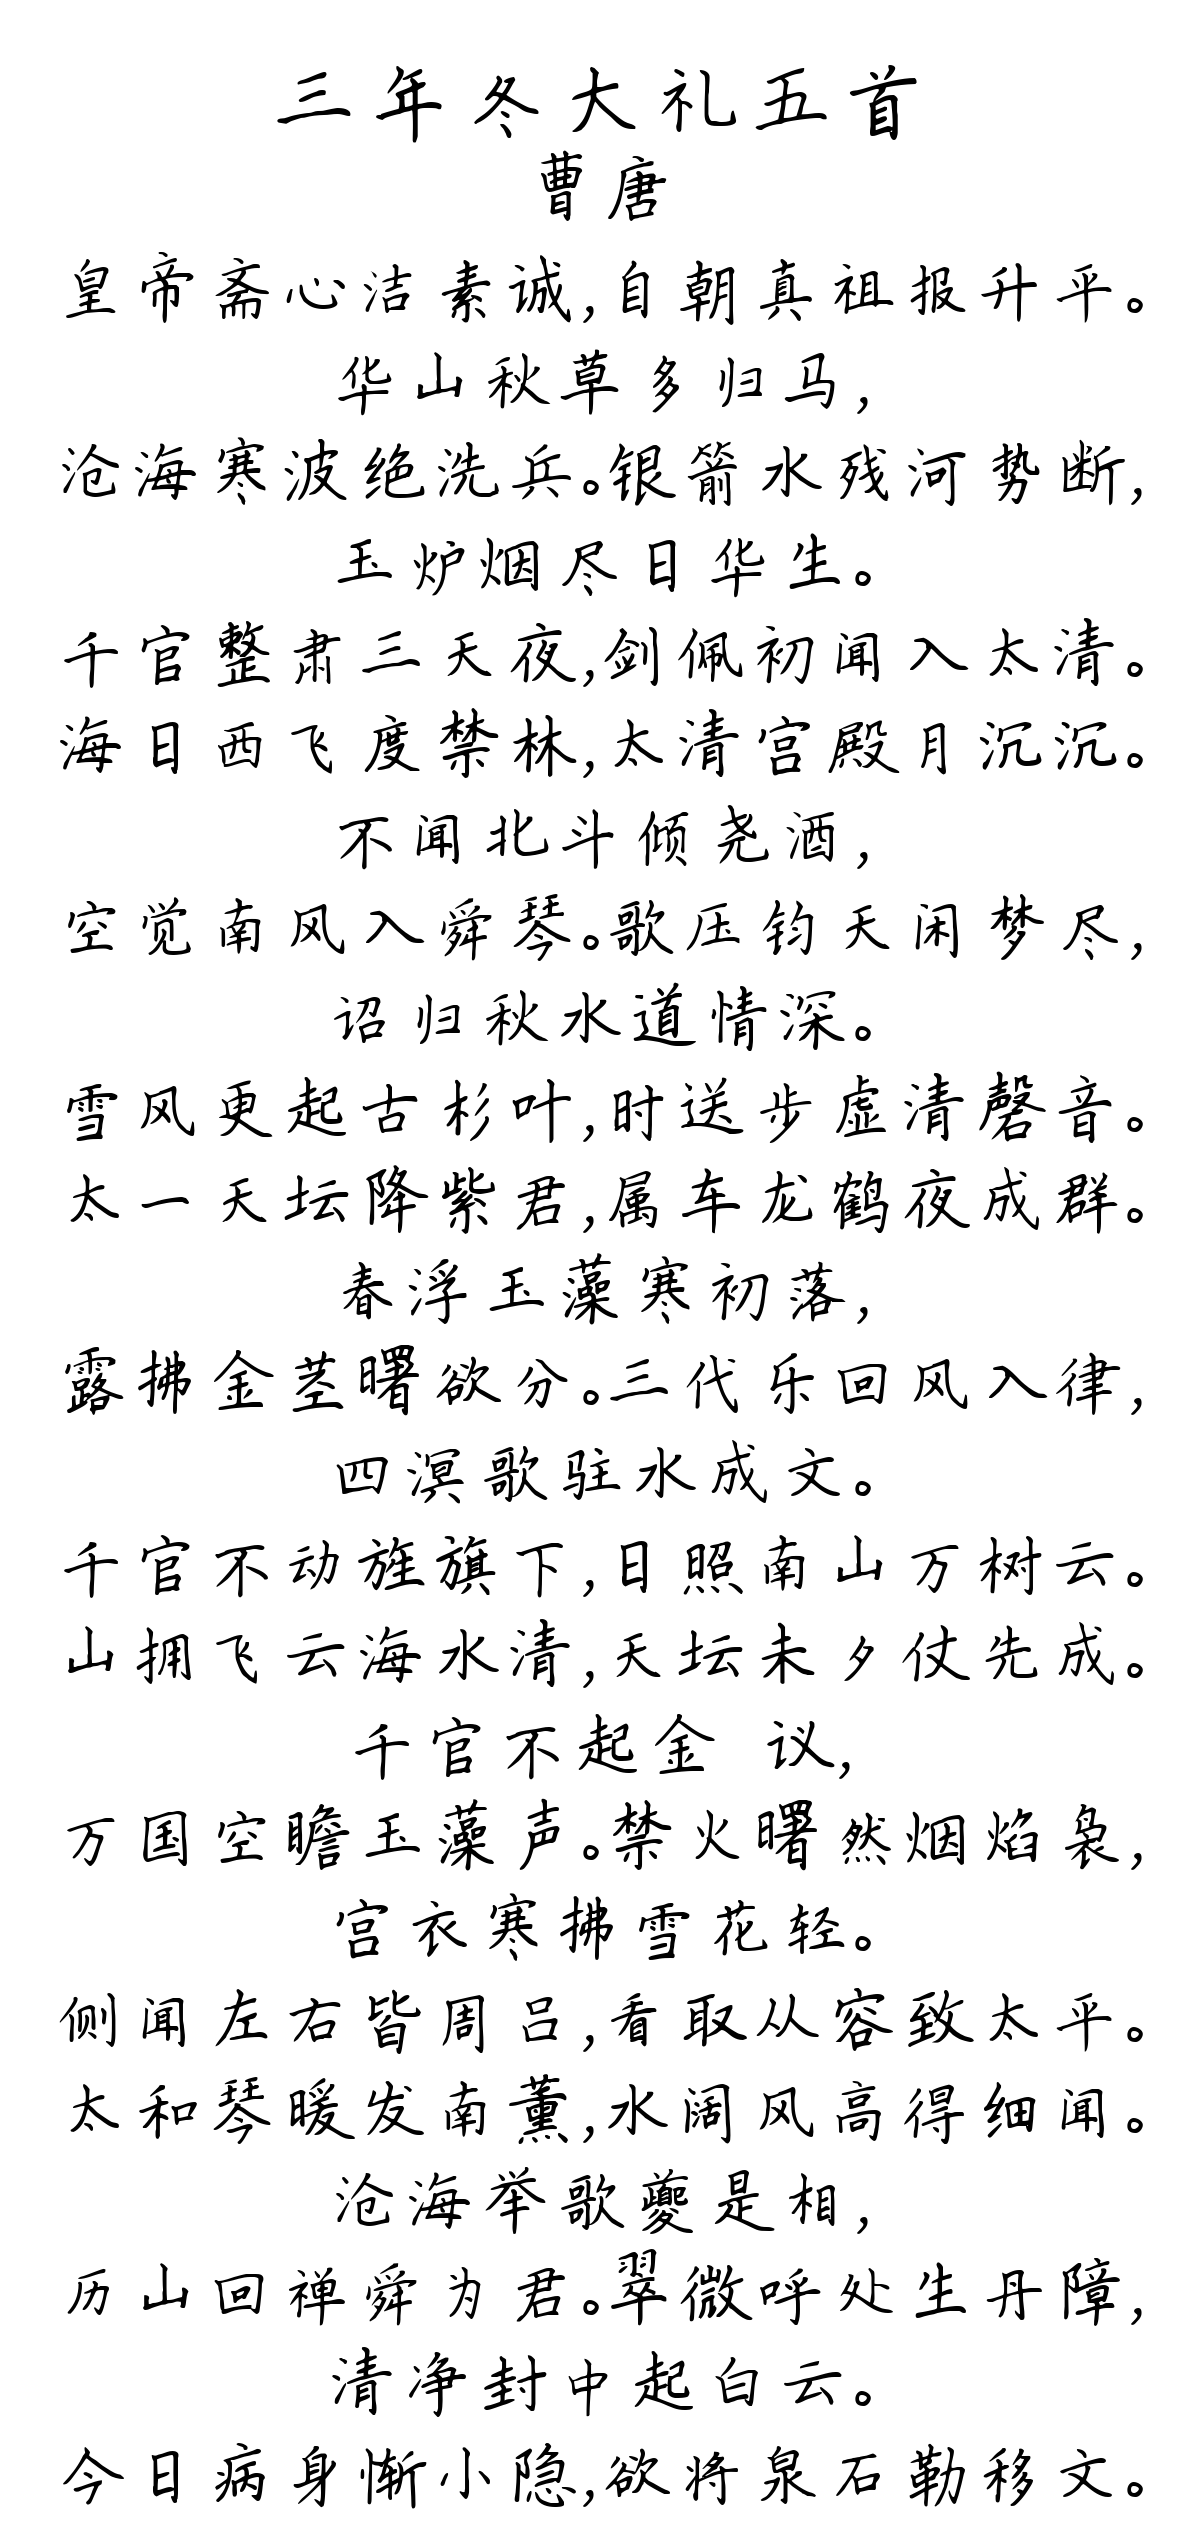 三年冬大礼五首
曹唐
皇帝斋心洁素诚,自朝真祖报升平。
华山秋草多归马,
沧海寒波绝洗兵。银箭水残河势断,
玉炉烟尽日华生。
千官整肃三天夜,剑佩初闻入太清。
海日西飞度禁林,太清宫殿月沉沉。
不闻北斗倾尧酒,
空觉南风入舜琴。歌压钧天闲梦尽,
诏归秋水道情深。
雪风更起古杉叶,时送步虚清磬音。
太一天坛降紫君,属车龙鹤夜成群。
春浮玉藻寒初落,
露拂金茎曙欲分。三代乐回风入律,
四溟歌驻水成文。
千官不动旌旗下,日照南山万树云。
山拥飞云海水清,天坛未夕仗先成。
千官不起金 议,
万国空瞻玉藻声。禁火曙然烟焰袅,
宫衣寒拂雪花轻。
侧闻左右皆周吕,看取从容致太平。
太和琴暖发南薰,水阔风高得细闻。
沧海举歌夔是相,
历山回禅舜为君。翠微呼处生丹障,
清净封中起白云。
今日病身惭小隐,欲将泉石勒移文。